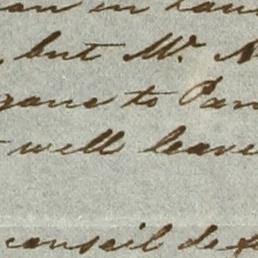 in
, but Mr. N
gone to Par
well leave
conseil de